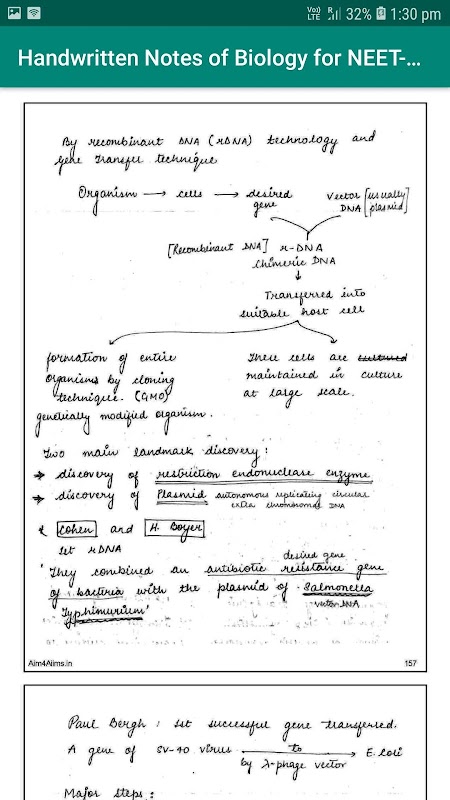 Voo)
LTE R 32% 1:30 pm
Handwritten Notes of Biology for NEET-...
By recombinant DNA (rDNA) technology and
gene transfer technique
Organism → cells → desired gene
Vector DNA [usually plasmid]
[Recombinant DNA] r-DNA
Chimeric DNA
↓
Transferred into
suitable host cell
formation of entire
organisms by cloning
technique. (GMO)
genetically modified organism.
These cells are cultured
maintained in culture
at large scale.
Two main landmark discovery:
→ discovery of restriction endonuclease enzyme
→ discovery of Plasmid autonomous replicating circular
extra chromosomal DNA
Cohen and H. Boyer
1st rDNA
desired gene
'They combined an antibiotic resistance gene
of bacteria with the plasmid of Salmonella
vector DNA
Typhimurium'
Aim4Aiims.in 157
Paul Bergh : 1st successful gene transferred.
A gene of SV-40 virus to E.coli
by λ-phage vector
Major steps :